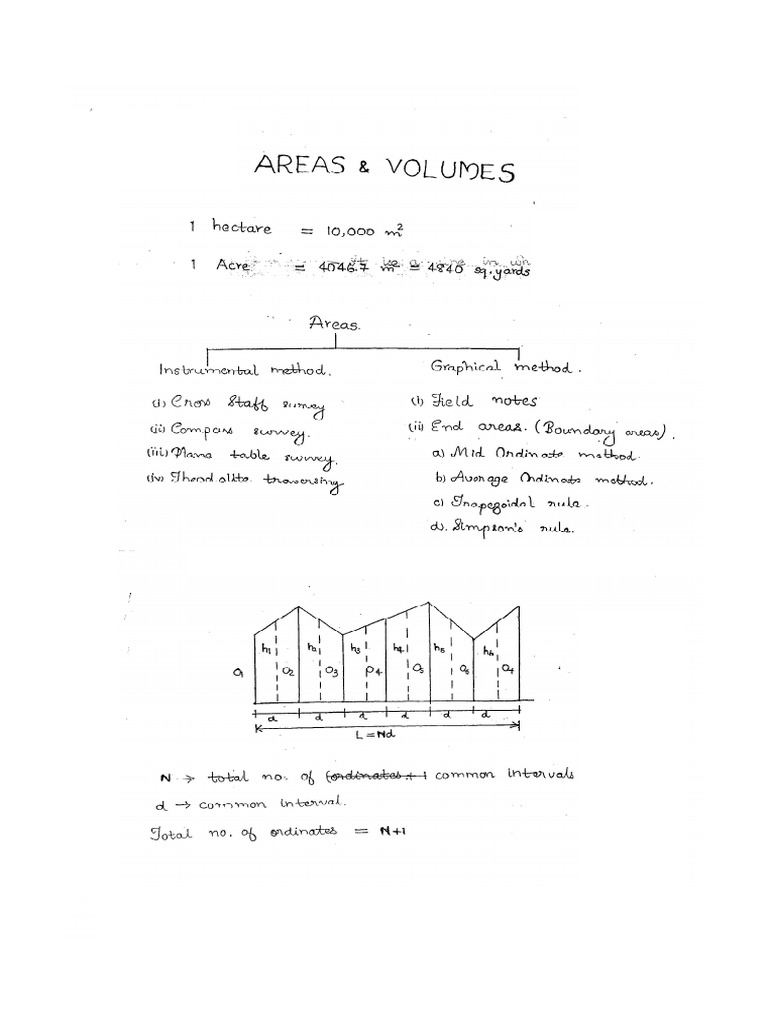 AREAS & VOLUMES
1 hectare = 10,000 m²
1 Acre = 4046.7 m² = 4840 sq.yards
Areas.
Instrumental method.
Graphical method.
(i) Cross Staff survey
(i) Field notes
(ii) Compass survey.
(ii) End areas. (Boundary areas).
(iii) Plane table survey.
a) Mid Ordinate method.
(iv) Theodolite traversing
b) Average Ordinate method.
c) Trapezoidal rule.
d). Simpson's rule.
h1 h2 h3 h4 h5 h6
O1 O2 O3 O4 O5 O6 O7
d d d d d d
L = Nd
N → total no. of (ordinates + 1 common intervals
d → common interval.
Total no. of ordinates = N+1